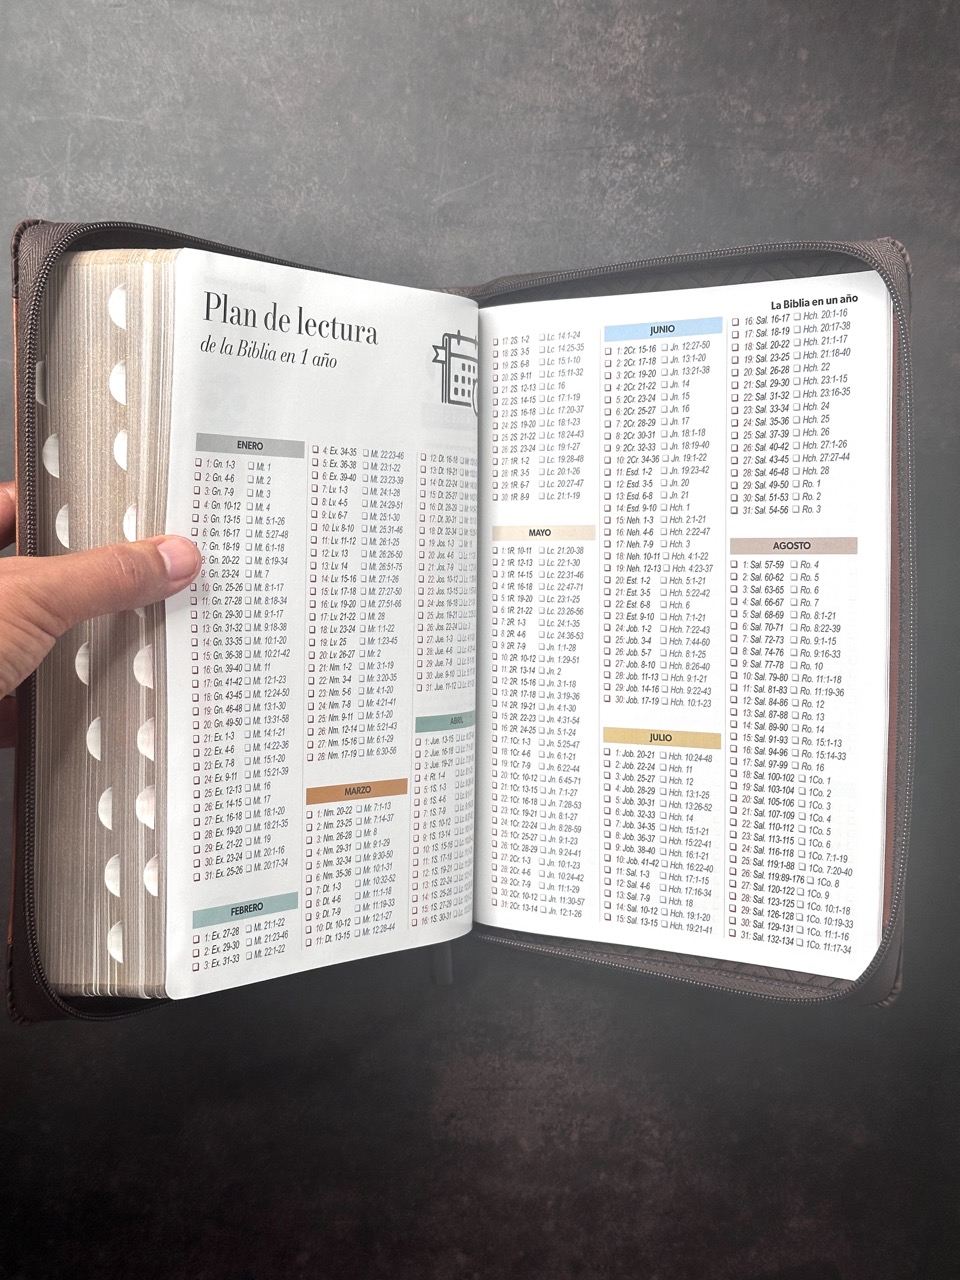 Plan de lectura
de la Biblia en 1 año
ENERO
1: Gn. 1-3 Mt. 1
2: Gn. 4-6 Mt. 2
3: Gn. 7-9 Mt. 3
4: Gn. 10-12 Mt. 4
5: Gn. 13-15 Mt. 5:1-26
6: Gn. 16-17 Mt. 5:27-48
7: Gn. 18-19 Mt. 6:1-18
8: Gn. 20-22 Mt. 6:19-34
9: Gn. 23-24 Mt. 7
10: Gn. 25-26 Mt. 8:1-17
11: Gn. 27-28 Mt. 8:18-34
12: Gn. 29-30 Mt. 9:1-17
13: Gn. 31-32 Mt. 9:18-38
14: Gn. 33-35 Mt. 10:1-20
15: Gn. 36-38 Mt. 10:21-42
16: Gn. 39-40 Mt. 11
17: Gn. 41-42 Mt. 12:1-23
18: Gn. 43-45 Mt. 12:24-50
19: Gn. 46-48 Mt. 13:1-30
20: Gn. 49-50 Mt. 13:31-58
21: Ex. 1-3 Mt. 14:1-21
22: Ex. 4-6 Mt. 14:22-36
23: Ex. 7-8 Mt. 15:1-20
24: Ex. 9-11 Mt. 15:21-39
25: Ex. 12-13 Mt. 16
26: Ex. 14-15 Mt. 17
27: Ex. 16-18 Mt. 18:1-20
28: Ex. 19-20 Mt. 18:21-35
29: Ex. 21-22 Mt. 19
30: Ex. 23-24 Mt. 20:1-16
31: Ex. 25-26 Mt. 20:17-34
FEBRERO
1: Ex. 27-28 Mt. 21:1-22
2: Ex. 29-30 Mt. 21:23-46
3: Ex. 31-33 Mt. 22:1-22
4: Ex. 34-35 Mt. 22:23-46
5: Ex. 36-38 Mt. 23:1-22
6: Ex. 39-40 Mt. 23:23-39
7: Lv. 1-3 Mt. 24:1-28
8: Lv. 4-5 Mt. 24:29-51
9: Lv. 6-7 Mt. 25:1-30
10: Lv. 8-10 Mt. 25:31-46
11: Lv. 11-12 Mt. 26:1-25
12: Lv. 13 Mt. 26:26-50
13: Lv. 14 Mt. 26:51-75
14: Lv. 15-16 Mt. 27:1-26
15: Lv. 17-18 Mt. 27:27-50
16: Lv. 19-20 Mt. 27:51-66
17: Lv. 21-22 Mt. 28
18: Lv. 23-24 Mr. 1:1-22
19: Lv. 25 Mr. 1:23-45
20: Lv. 26-27 Mr. 2
21: Nm. 1-2 Mr. 3:1-19
22: Nm. 3-4 Mr. 3:20-35
23: Nm. 5-6 Mr. 4:1-20
24: Nm. 7-8 Mr. 4:21-41
25: Nm. 9-11 Mr. 5:1-20
26: Nm. 12-14 Mr. 5:21-43
27: Nm. 15-16 Mr. 6:1-29
28: Nm. 17-19 Mr. 6:30-56
MARZO
1: Nm. 20-22 Mr. 7:1-13
2: Nm. 23-25 Mr. 7:14-37
3: Nm. 26-28 Mr. 8
4: Nm. 29-31 Mr. 9:1-29
5: Nm. 32-34 Mr. 9:30-50
6: Nm. 35-36 Mr. 10:1-31
7: Dt. 1-3 Mr. 10:32-52
8: Dt. 4-6 Mr. 11:1-18
9: Dt. 7-9 Mr. 11:19-33
10: Dt. 10-12 Mr. 12:1-27
11: Dt. 13-15 Mr. 12:28-44
12: Dt. 16-18
13: Dt. 19-21
14: Dt. 22-24
15: Dt. 25-27
16: Dt. 28-29
17: Dt. 30-31
18: Dt. 32-34
19: Jos. 1-3
20: Jos. 4-6
21: Jos. 7-9
22: Jos. 10-12
23: Jos. 13-15
24: Jos. 16-18
25: Jos. 19-21
26: Jos. 22-24
27: Jue. 1-3
28: Jue. 4-6
29: Jue. 7-8
30: Jue. 9-10
31: Jue. 11-12
ABRIL
1: Jue. 13-15
2: Jue. 16-18
3: Jue. 19-21
4: Rt. 1-4
5: 1S. 1-3
6: 1S. 4-6
7: 1S. 7-9
8: 1S. 10-12
9: 1S. 13-14
10: 1S. 15-16
11: 1S. 17-18
12: 1S. 19-21
13: 1S. 22-24
14: 1S. 25-26
15: 1S. 27-29
16: 1S. 30-31
La Biblia en un año
17: 2S. 1-2 Lc. 14:1-24
18: 2S. 3-5 Lc. 14:25-35
19: 2S. 6-8 Lc. 15:1-10
20: 2S. 9-11 Lc. 15:11-32
21: 2S. 12-13 Lc. 16
22: 2S. 14-15 Lc. 17:1-19
23: 2S. 16-18 Lc. 17:20-37
24: 2S. 19-20 Lc. 18:1-23
25: 2S. 21-22 Lc. 18:24-43
26: 2S. 23-24 Lc. 19:1-27
27: 1R. 1-2 Lc. 19:28-48
28: 1R. 3-5 Lc. 20:1-26
29: 1R. 6-7 Lc. 20:27-47
30: 1R. 8-9 Lc. 21:1-19
MAYO
1: 1R. 10-11 Lc. 21:20-38
2: 1R. 12-13 Lc. 22:1-30
3: 1R. 14-15 Lc. 22:31-46
4: 1R. 16-18 Lc. 22:47-71
5: 1R. 19-20 Lc. 23:1-25
6: 1R. 21-22 Lc. 23:26-56
7: 2R. 1-3 Lc. 24:1-35
8: 2R. 4-6 Lc. 24:36-53
9: 2R. 7-9 Jn. 1:1-28
10: 2R. 10-12 Jn. 1:29-51
11: 2R. 13-14 Jn. 2
12: 2R. 15-16 Jn. 3:1-18
13: 2R. 17-18 Jn. 3:19-36
14: 2R. 19-21 Jn. 4:1-30
15: 2R. 22-23 Jn. 4:31-54
16: 2R. 24-25 Jn. 5:1-24
17: 1Cr. 1-3 Jn. 5:25-47
18: 1Cr. 4-6 Jn. 6:1-21
19: 1Cr. 7-9 Jn. 6:22-44
20: 1Cr. 10-12 Jn. 6:45-71
21: 1Cr. 13-15 Jn. 7:1-27
22: 1Cr. 16-18 Jn. 7:28-53
23: 1Cr. 19-21 Jn. 8:1-27
24: 1Cr. 22-24 Jn. 8:28-59
25: 1Cr. 25-27 Jn. 9:1-23
26: 1Cr. 28-29 Jn. 9:24-41
27: 2Cr. 1-3 Jn. 10:1-23
28: 2Cr. 4-6 Jn. 10:24-42
29: 2Cr. 7-9 Jn. 11:1-29
30: 2Cr. 10-12 Jn. 11:30-57
31: 2Cr. 13-14 Jn. 12:1-26
JUNIO
1: 2Cr. 15-16 Jn. 12:27-50
2: 2Cr. 17-18 Jn. 13:1-20
3: 2Cr. 19-20 Jn. 13:21-38
4: 2Cr. 21-22 Jn. 14
5: 2Cr. 23-24 Jn. 15
6: 2Cr. 25-27 Jn. 16
7: 2Cr. 28-29 Jn. 17
8: 2Cr. 30-31 Jn. 18:1-18
9: 2Cr. 32-33 Jn. 18:19-40
10: 2Cr. 34-36 Jn. 19:1-22
11: Esd. 1-2 Jn. 19:23-42
12: Esd. 3-5 Jn. 20
13: Esd. 6-8 Jn. 21
14: Esd. 9-10 Hch. 1
15: Neh. 1-3 Hch. 2:1-21
16: Neh. 4-6 Hch. 2:22-47
17: Neh. 7-9 Hch. 3
18: Neh. 10-11 Hch. 4:1-22
19: Neh. 12-13 Hch. 4:23-37
20: Est. 1-2 Hch. 5:1-21
21: Est. 3-5 Hch. 5:22-42
22: Est. 6-8 Hch. 6
23: Est. 9-10 Hch. 7:1-21
24: Job. 1-2 Hch. 7:22-43
25: Job. 3-4 Hch. 7:44-60
26: Job. 5-7 Hch. 8:1-25
27: Job. 8-10 Hch. 8:26-40
28: Job. 11-13 Hch. 9:1-21
29: Job. 14-16 Hch. 9:22-43
30: Job. 17-19 Hch. 10:1-23
JULIO
1: Job. 20-21 Hch. 10:24-48
2: Job. 22-24 Hch. 11
3: Job. 25-27 Hch. 12
4: Job. 28-29 Hch. 13:1-25
5: Job. 30-31 Hch. 13:26-52
6: Job. 32-33 Hch. 14
7: Job. 34-35 Hch. 15:1-21
8: Job. 36-37 Hch. 15:22-41
9: Job. 38-40 Hch. 16:1-21
10: Job. 41-42 Hch. 16:22-40
11: Sal. 1-3 Hch. 17:1-15
12: Sal. 4-6 Hch. 17:16-34
13: Sal. 7-9 Hch. 18
14: Sal. 10-12 Hch. 19:1-20
15: Sal. 13-15 Hch. 19:21-41
16: Sal. 16-17 Hch. 20:1-16
17: Sal. 18-19 Hch. 20:17-38
18: Sal. 20-22 Hch. 21:1-17
19: Sal. 23-25 Hch. 21:18-40
20: Sal. 26-28 Hch. 22
21: Sal. 29-30 Hch. 23:1-15
22: Sal. 31-32 Hch. 23:16-35
23: Sal. 33-34 Hch. 24
24: Sal. 35-36 Hch. 25
25: Sal. 37-39 Hch. 26
26: Sal. 40-42 Hch. 27:1-26
27: Sal. 43-45 Hch. 27:27-44
28: Sal. 46-48 Hch. 28
29: Sal. 49-50 Ro. 1
30: Sal. 51-53 Ro. 2
31: Sal. 54-56 Ro. 3
AGOSTO
1: Sal. 57-59 Ro. 4
2: Sal. 60-62 Ro. 5
3: Sal. 63-65 Ro. 6
4: Sal. 66-67 Ro. 7
5: Sal. 68-69 Ro. 8:1-21
6: Sal. 70-71 Ro. 8:22-39
7: Sal. 72-73 Ro. 9:1-15
8: Sal. 74-76 Ro. 9:16-33
9: Sal. 77-78 Ro. 10
10: Sal. 79-80 Ro. 11:1-18
11: Sal. 81-83 Ro. 11:19-36
12: Sal. 84-86 Ro. 12
13: Sal. 87-88 Ro. 13
14: Sal. 89-90 Ro. 14
15: Sal. 91-93 Ro. 15:1-13
16: Sal. 94-96 Ro. 15:14-33
17: Sal. 97-99 Ro. 16
18: Sal. 100-102 1Co. 1
19: Sal. 103-104 1Co. 2
20: Sal. 105-106 1Co. 3
21: Sal. 107-109 1Co. 4
22: Sal. 110-112 1Co. 5
23: Sal. 113-115 1Co. 6
24: Sal. 116-118 1Co. 7:1-19
25: Sal. 119:1-88 1Co. 7:20-40
26: Sal. 119:89-176 1Co. 8
27: Sal. 120-122 1Co. 9
28: Sal. 123-125 1Co. 10:1-18
29: Sal. 126-128 1Co. 10:19-33
30: Sal. 129-131 1Co. 11:1-16
31: Sal. 132-134 1Co. 11:17-34